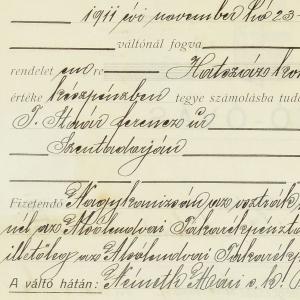 1911 évi november hó 23-
váltónál fogva
rendelet em re Hatszáz ko
értéke készpénzben tegye számolásba tudó
T. Ferencz úr
Szentadorján
Fizetendő Nagykanizsán az osztrák
nél az Alsólendvai Takarékpénzt
illetőleg az Alsólendvai Takarékp
A váltó hátán: Németh s.k.!